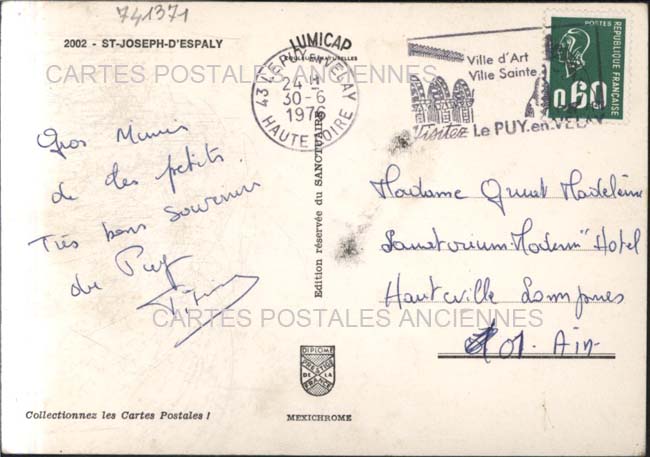 741371
2002 - ST-JOSEPH-D'ESPALY
LUMICAP
COULEURS NATURELLES
43 LE PUY EN VELAY
24 H
30-6
1976
HAUTE LOIRE
Ville d'Art
Ville Sainte
Visitez Le PUY.en.VELAY
POSTES
REPUBLIQUE FRANÇAISE
0,60
CARTES POSTALES ANCIENNES
Gros Mimis
de tes petits.
Très bons souvenirs
du Puy
Edition réservée du SANCTUAIRE
Madame Madeleine
Sanatorium "Modern" Hotel
Hauteville Lompnes
01. Ain
CARTES POSTALES ANCIENNES
DIPLOME
PRESTIGE
DE LA
FRANCE
Collectionnez les Cartes Postales !
MEXICHROME